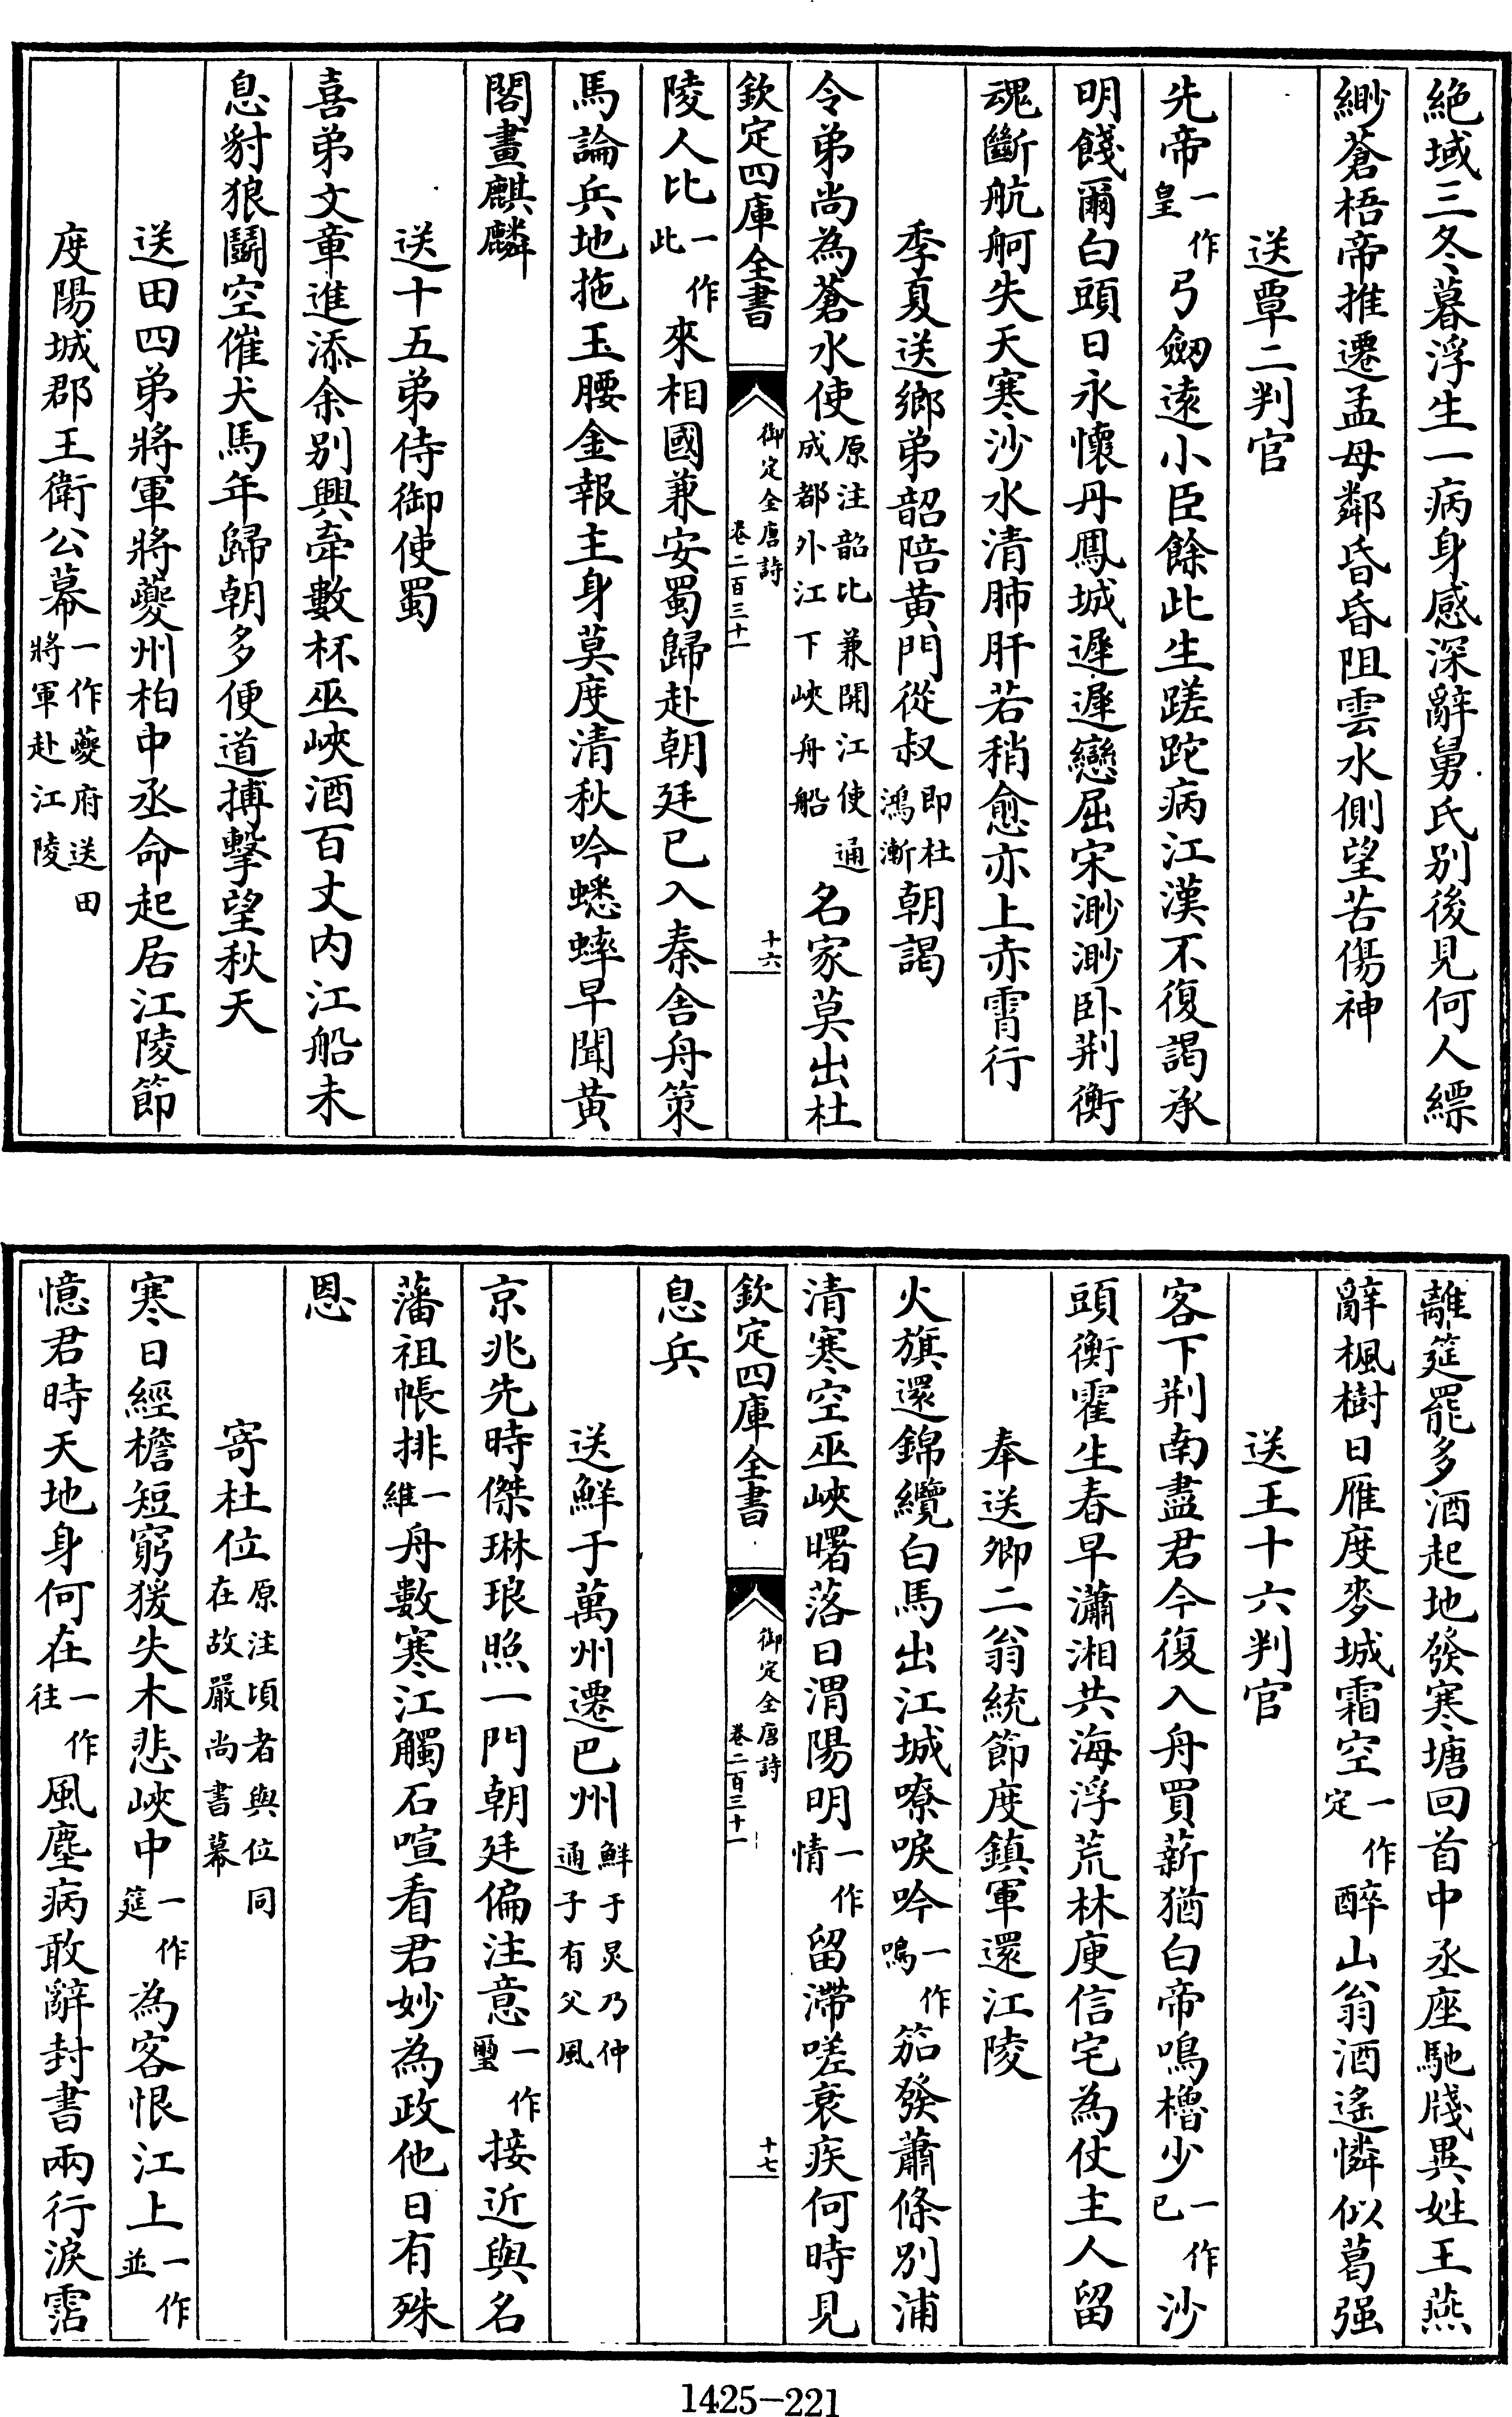 絶域三冬暮浮生一病身感深辭舅氏别後見何人縹
緲蒼梧帝推遷孟母鄰昏昏阻雲水側望苦傷神
送覃二判官
先帝一作皇弓劒遠小臣餘此生蹉跎病江漢不復謁承
明餞爾白頭日永懷丹鳳城遲遲戀屈宋渺渺卧荆衡
魂斷航舸失天寒沙水清肺肝若稍愈亦上赤霄行
季夏送鄉弟韶陪黄門從叔即杜鴻漸朝謁
令弟尚為蒼水使原注韶比兼開江使通成都外江下峽舟船名家莫出杜
欽定四庫全書 御定全唐詩卷二百三十一 十六
陵人比一作此來相國兼安蜀歸赴朝廷已入秦舍舟策
馬論兵地拖玉腰金報主身莫度清秋吟蟋蟀早聞黄
閣畫麒麟
送十五弟侍御使蜀
喜弟文章進添余别興牽數杯巫峽酒百丈内江船未
息豺狼鬭空催犬馬年歸朝多便道搏擊望秋天
送田四弟將軍將夔州柏中丞命起居江陵節
度陽城郡王衛公幕一作夔府送田將軍赴江陵
離筵罷多酒起地發寒塘回首中丞座馳牋異姓王燕
辭楓樹日雁度麥城霜空一作定醉山翁酒遙憐似葛强
送王十六判官
客下荆南盡君今復入舟買薪猶白帝鳴櫓少一作已沙
頭衡霍生春早瀟湘共海浮荒林庾信宅為仗主人留
奉送卿二翁統節度鎮軍還江陵
火旗還錦纜白馬出江城嘹唳吟一作鳴笳發蕭條别浦
清寒空巫峽曙落日渭陽明一作情留滯嗟衰疾何時見
欽定四庫全書 御定全唐詩卷二百三十一 十七
息兵
送鮮于萬州遷巴州鮮于炅乃仲通子有父風
京兆先時傑琳琅照一門朝廷偏注意一作璽接近與名
藩祖帳排一維舟數寒江觸石喧看君妙為政他日有殊
恩
寄杜位原注頃者與位同在故嚴尚書幕
寒日經檐短窮猨失木悲峽中一作筵為客恨江上一作並
憶君時天地身何在一作往風塵病敢辭封書兩行淚霑
1425-221